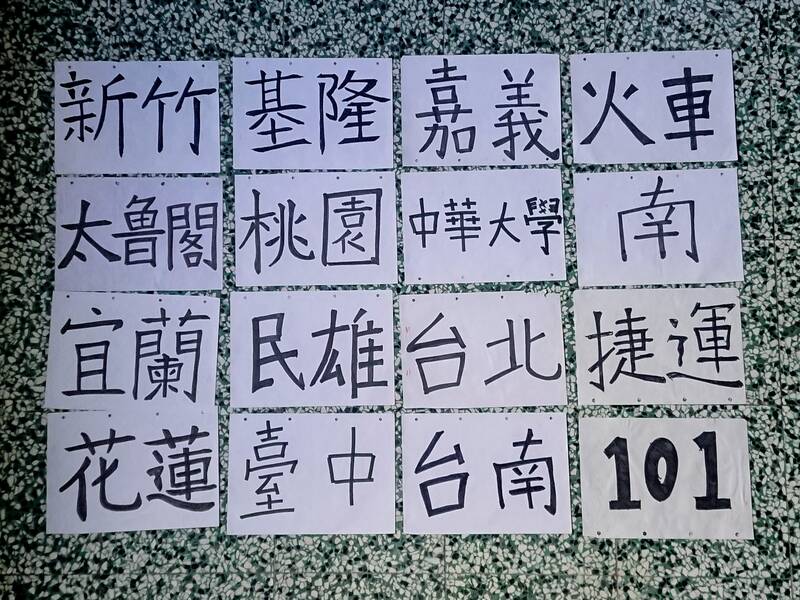 新竹
基隆
嘉義
火車
太魯閣
桃園
中華大學
南
宜蘭
民雄
台北
捷運
花蓮
臺中
台南
101